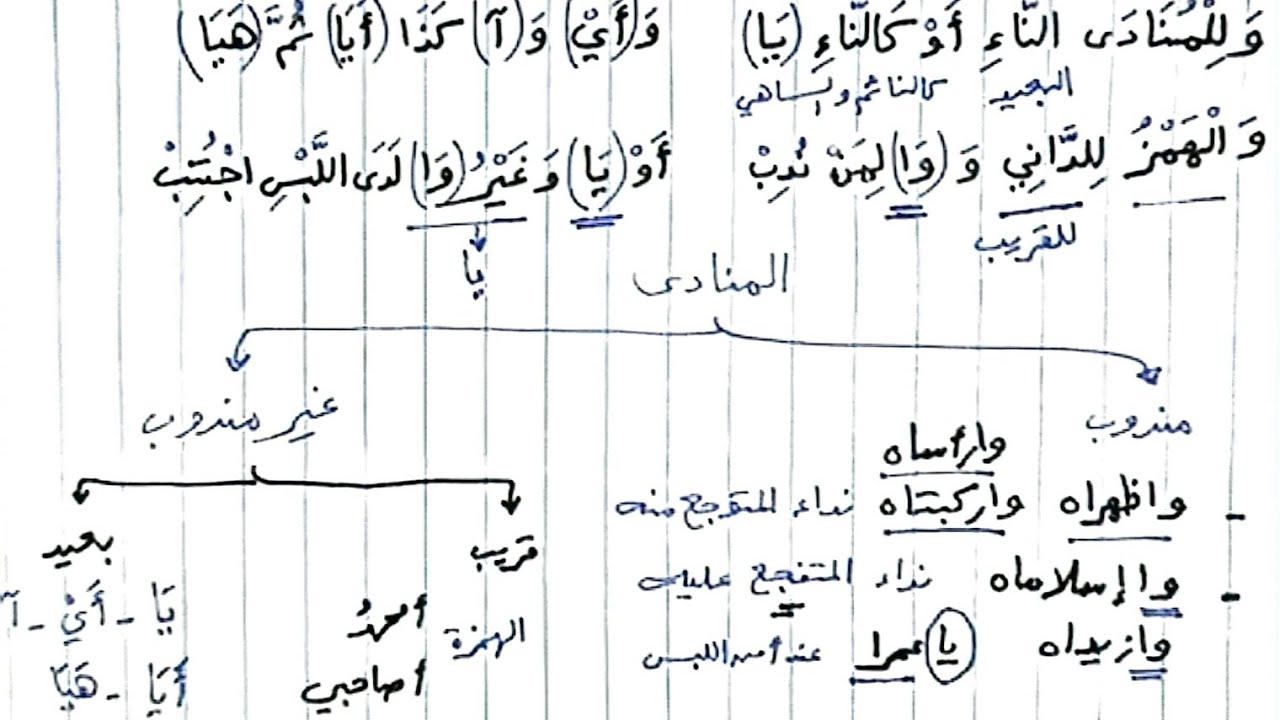 وَلِلْمُنَادَى النَّاءِ أَوْ كَالنَّاءِ (يَا) وَ(أَيْ) وَ(آ) كَذَا (أَيَا) ثُمَّ (هَيَا)
البعيد كالنائم والساهي
وَالْهَمْزُ لِلدَّانِي وَ(وَا) لِمَنْ نُدِبْ أَوْ (يَا) وَغَيْرُ (وَا) لَدَى اللَّبْسِ اجْتُنِبْ
للقريب يا
المنادى
مندوب غير مندوب
وارأساه
- واظهراه واركبتاه نداء المتوجع منه
قريب بعيد
- واإسلاماه نداء المتفجع عليه
الهمزة أمحمدُ يَا - أَيْ - آ
وازيداه يا عمرا عند أمن اللبس
أصاحبي أَيَا - هَيَا